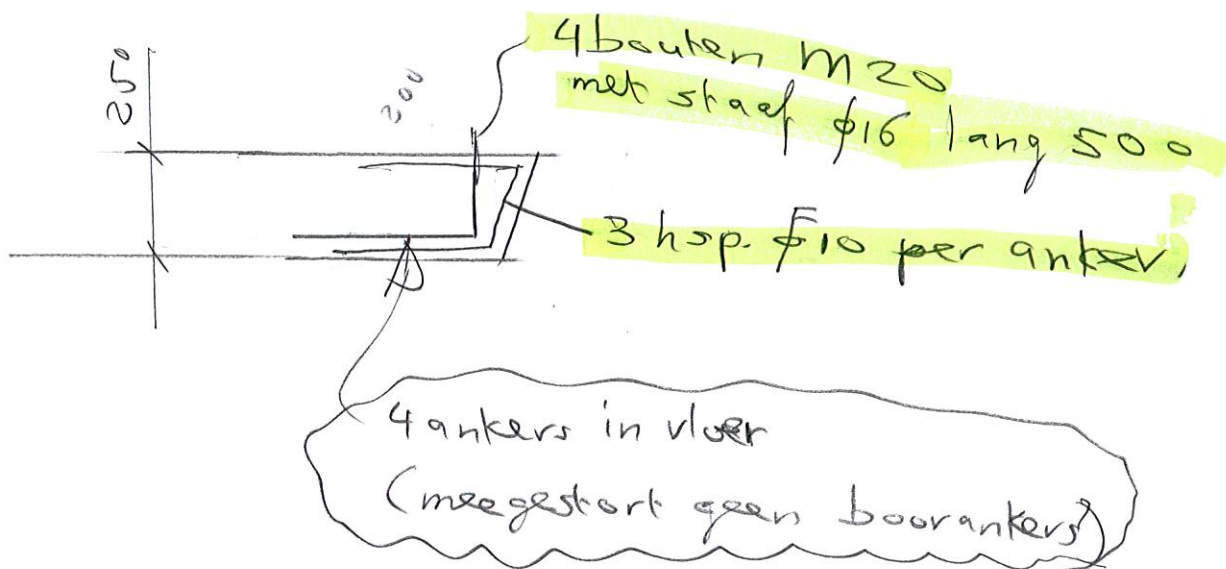 4 bouten M20
met staaf ϕ16 lang 500
250
200
3 hsp. ϕ10 per anker,
4 ankers in vloer
(meegestort geen boorankers)